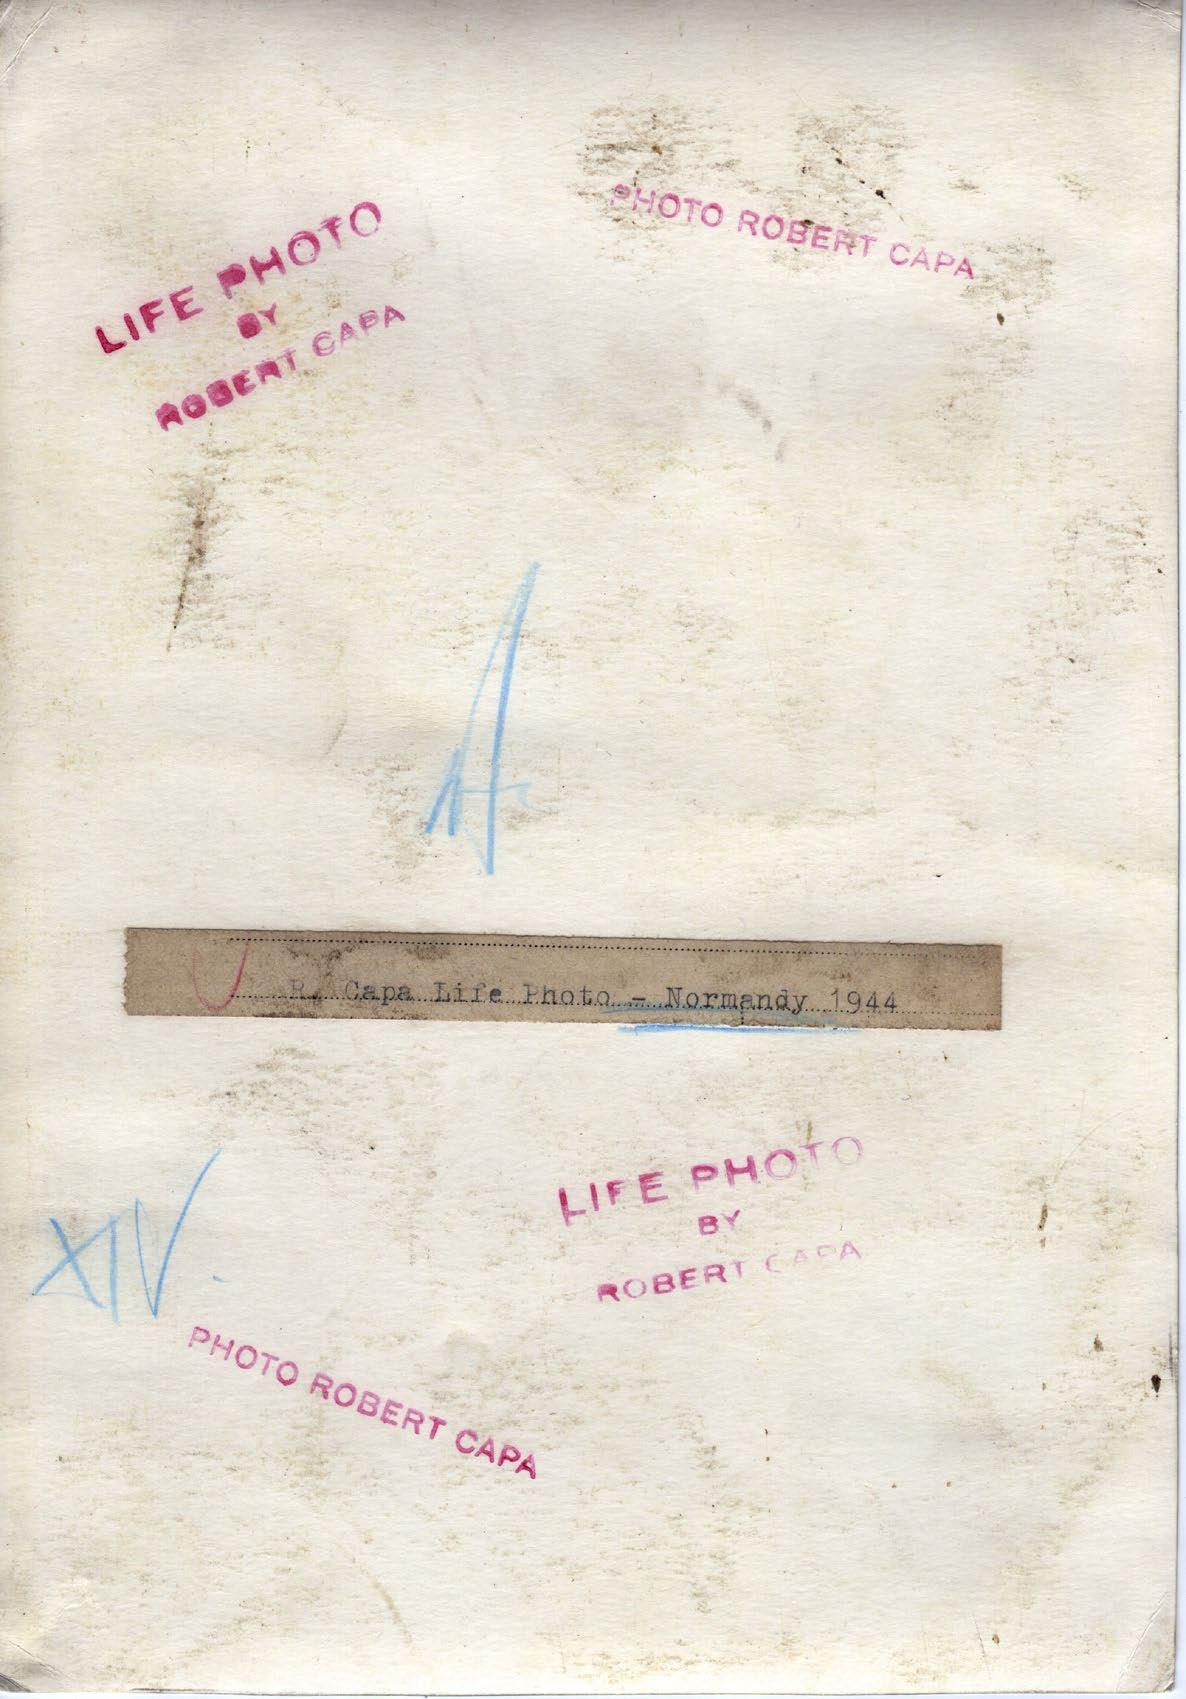 LIFE PHOTO
BY
ROBERT CAPA
PHOTO ROBERT CAPA
R. Capa Life Photo - Normandy 1944
LIFE PHOTO
BY
ROBERT CAPA
XIV.
PHOTO ROBERT CAPA